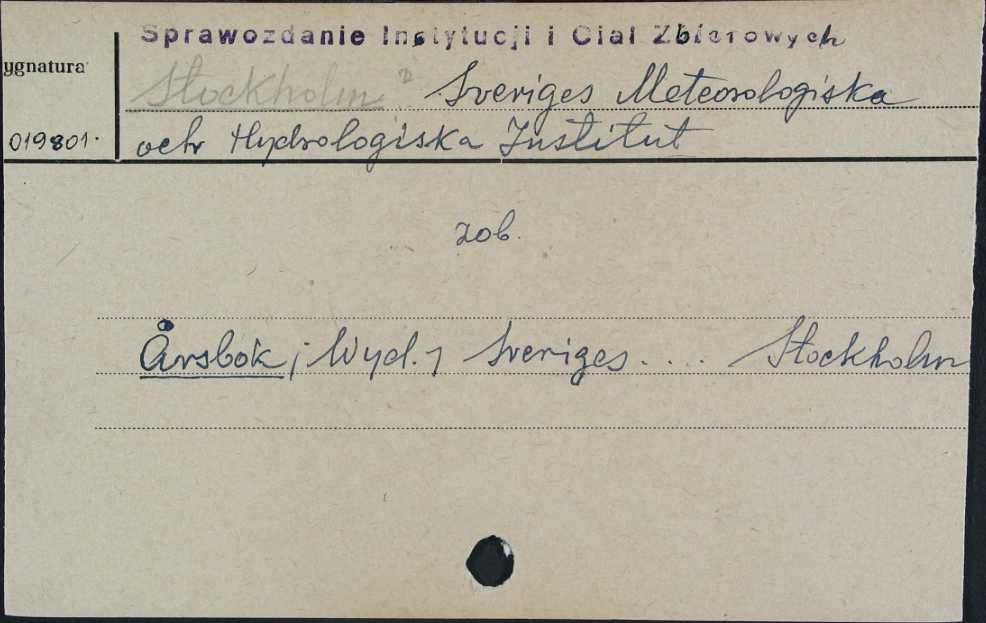 Sprawozdanie Instytucji i Ciał Zbiorowych
ygnatura
Stockholm Sveriges Meteorologiska
019801. och Hydrologiska Institut
zob.
Årsbok; Wyd.; Sveriges.... Stockholm